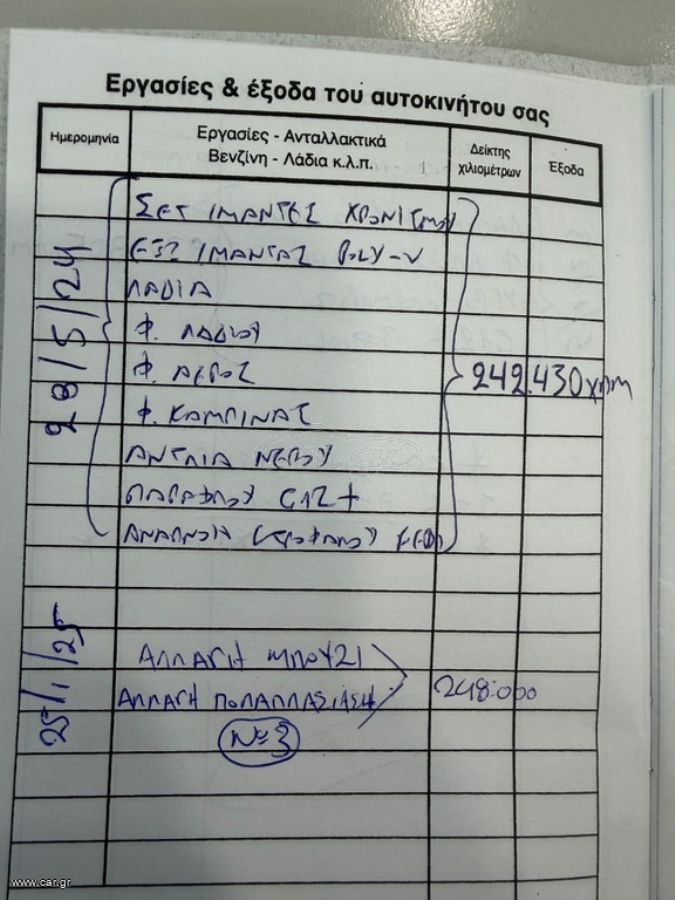 Εργασίες & έξοδα του αυτοκινήτου σας
Ημερομηνία
Εργασίες - Ανταλλακτικά
Βενζίνη - Λάδια κ.λ.π.
Δείκτης
χιλιομέτρων
Έξοδα
28/5/24
ΣΕΤ ΙΜΑΝΤΕΣ ΧΡΟΝΙΣΜΟΥ
ΕΞΩ ΙΜΑΝΤΑΣ POLY-V
ΛΑΔΙΑ
Φ. ΛΑΔΙΟΥ
Φ. ΑΕΡΟΣ
242.430 χλμ
Φ. ΚΑΜΠΙΝΑΣ
ΑΝΤΛΙΑ ΝΕΡΟΥ
ΠΑΡΑΦΛΟΥ G12+
ΑΝΑΠΝΟΗ
25/1/25
ΑΛΛΑΓΗ ΜΠΟΥΖΙ
ΑΛΛΑΓΗ ΠΟΛΑΠΛΑΣΙΑΣΗ
248.000
Νο 3
www.car.gr